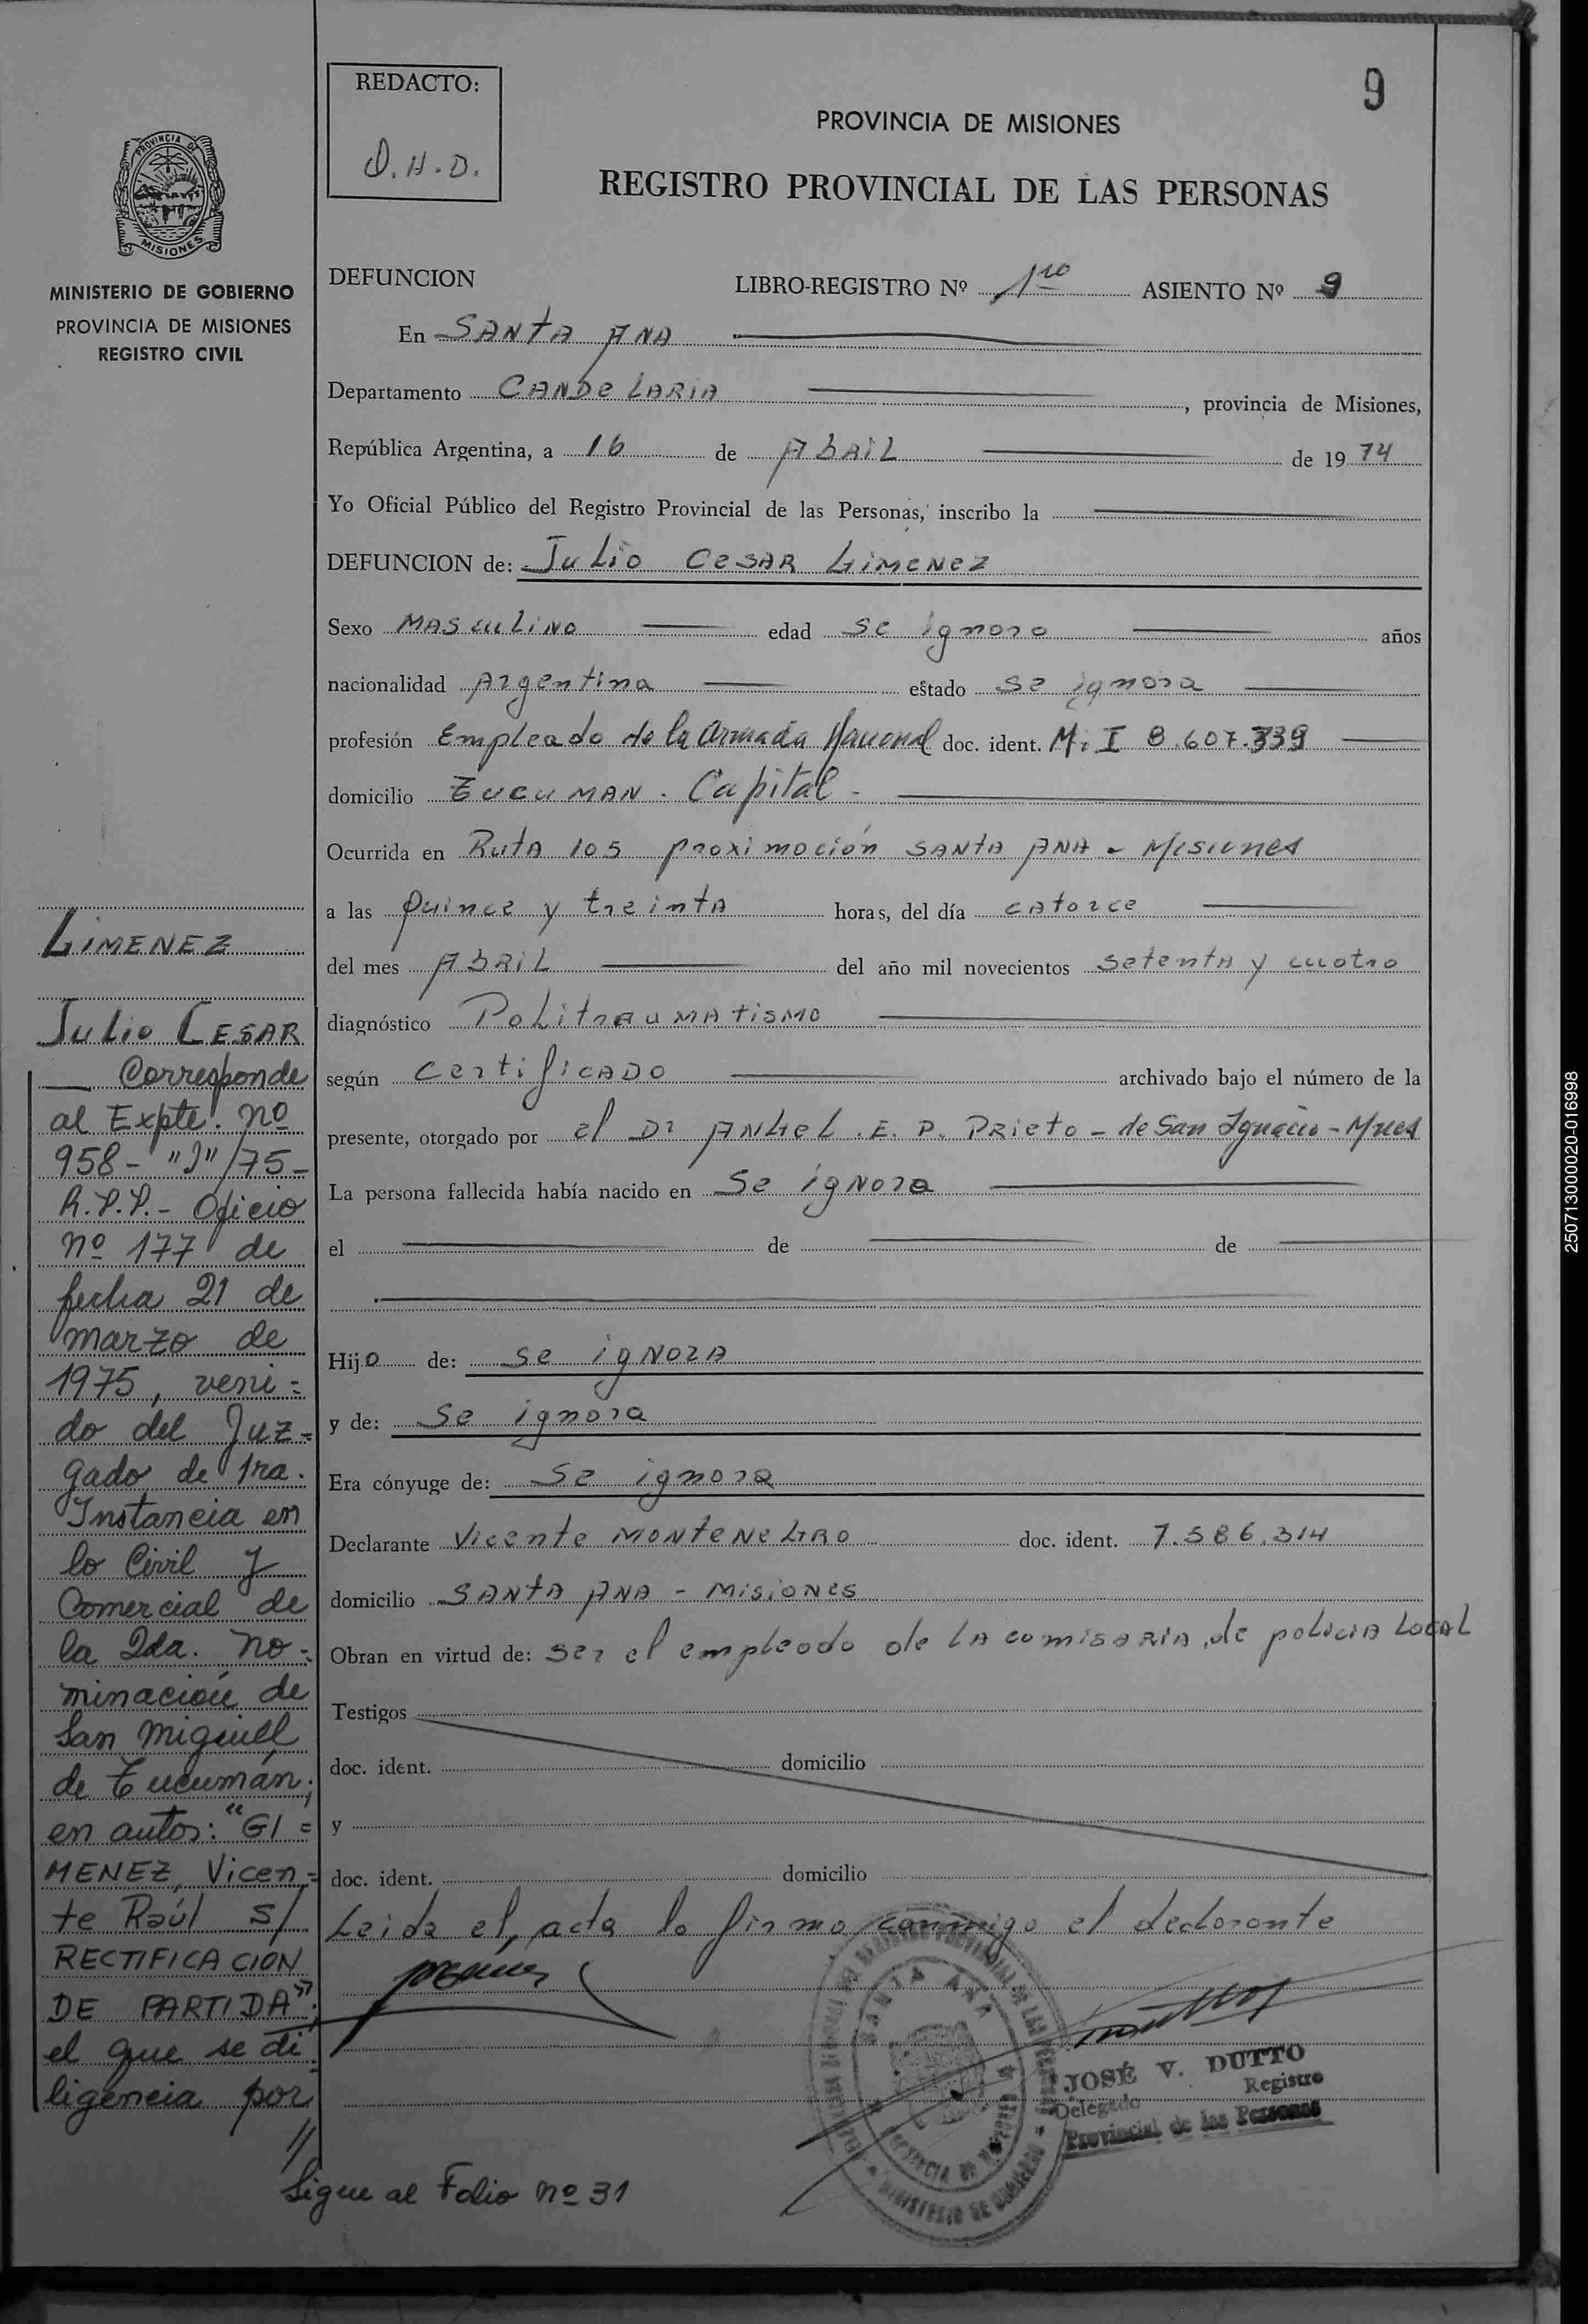 REDACTO:
D.H.D.
9
PROVINCIA DE MISIONES
REGISTRO PROVINCIAL DE LAS PERSONAS
PROVINCIA DE
MISIONES
MINISTERIO DE GOBIERNO
PROVINCIA DE MISIONES
REGISTRO CIVIL
DEFUNCION LIBRO-REGISTRO Nº 1ro ASIENTO Nº 9
En SANTA ANA
Departamento CANDELARIA, provincia de Misiones,
República Argentina, a 16 de ABRIL de 1974
Yo Oficial Público del Registro Provincial de las Personas, inscribo la
DEFUNCION de: Julio CESAR GIMENEZ
Sexo MASCULINO edad se ignora años
nacionalidad Argentina estado se ignora
profesión Empleado de la Armada Nacional doc. ident. M. I 8.607.339
domicilio TUCUMAN. Capital.
Ocurrida en RUTA 105 proximación SANTA ANA - Misiones
a las Quince y treinta horas, del día catorce
del mes ABRIL del año mil novecientos setenta y cuatro
diagnóstico Politraumatismo
según Certificado archivado bajo el número de la
presente, otorgado por el Dr ANGEL. E. P. Prieto - de San Ignacio - Mnes
La persona fallecida había nacido en Se ignora
el de de
Hijo de: se ignora
y de: Se ignora
Era cónyuge de: Se ignora
Declarante Vicente MONTENEGRO doc. ident. 7.586.314
domicilio SANTA ANA - Misiones
Obran en virtud de: ser el empleado de la comisaria de policia Local
Testigos
doc. ident. domicilio
y
doc. ident. domicilio
Leida el acta la firma conmigo el declarante
SANTA ANA
MINISTERIO DE GOBIERNO
JOSÉ V. DUTTO
Delegado Registro
Provincial de las Personas
GIMENEZ
Julio CESAR
Corresponde
al Expte. nº
958- "J"/75-
R.P.P.- Oficio
nº 177 de
fecha 21 de
marzo de
1975, veni=
do del Juz=
gado de 1ra.
Instancia en
lo Civil y
Comercial de
la 2da. No=
minación de
San Miguel
de Tucumán;
en autos: "GI=
MENEZ, Vicen=
te Raúl s/
RECTIFICACION
DE PARTIDA";
el que se di
ligencia por
//
Sigue al Folio nº 31
250713000020-016998